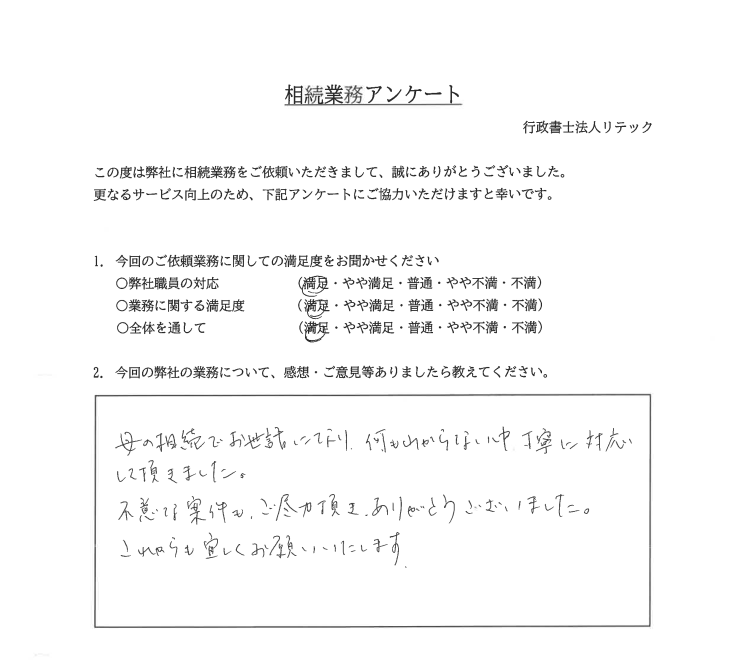 相続業務アンケート
行政書士法人リテック
この度は弊社に相続業務をご依頼いただきまして、誠にありがとうございました。
更なるサービス向上のため、下記アンケートにご協力いただけますと幸いです。
1. 今回のご依頼業務に関しての満足度をお聞かせください
○弊社職員の対応 （満足・やや満足・普通・やや不満・不満）
○業務に関する満足度 （満足・やや満足・普通・やや不満・不満）
○全体を通して （満足・やや満足・普通・やや不満・不満）
2. 今回の弊社の業務について、感想・ご意見等ありましたら教えてください。
母の相続でお世話になり、何もわからない中、丁寧に対応
して頂きました。
案件も、ご尽力頂き、ありがとうございました。
これからも宜しくお願いいたします.